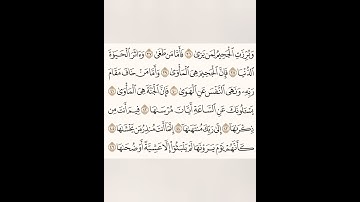 وَبُرِّزَتِ ٱلْجَحِيمُ لِمَن يَرَىٰ ٣٦ فَأَمَّا مَن طَغَىٰ ٣٧ وَءَاثَرَ ٱلْحَيَوٰةَ
ٱلدُّنْيَا ٣٨ فَإِنَّ ٱلْجَحِيمَ هِىَ ٱلْمَأْوَىٰ ٣٩ وَأَمَّا مَنْ خَافَ مَقَامَ
رَبِّهِۦ وَنَهَى ٱلنَّفْسَ عَنِ ٱلْهَوَىٰ ٤٠ فَإِنَّ ٱلْجَنَّةَ هِىَ ٱلْمَأْوَىٰ ٤١
يَسْـَٔلُونَكَ عَنِ ٱلسَّاعَةِ أَيَّانَ مُرْسَىٰهَا ٤٢ فِيمَ أَنتَ مِن
ذِكْرَىٰهَآ ٤٣ إِلَىٰ رَبِّكَ مُنتَهَىٰهَآ ٤٤ إِنَّمَآ أَنتَ مُنذِرُ مَن يَخْشَىٰهَا ٤٥
كَأَنَّهُمْ يَوْمَ يَرَوْنَهَا لَمْ يَلْبَثُوٓا۟ إِلَّا عَشِيَّةً أَوْ ضُحَىٰهَا ٤٦